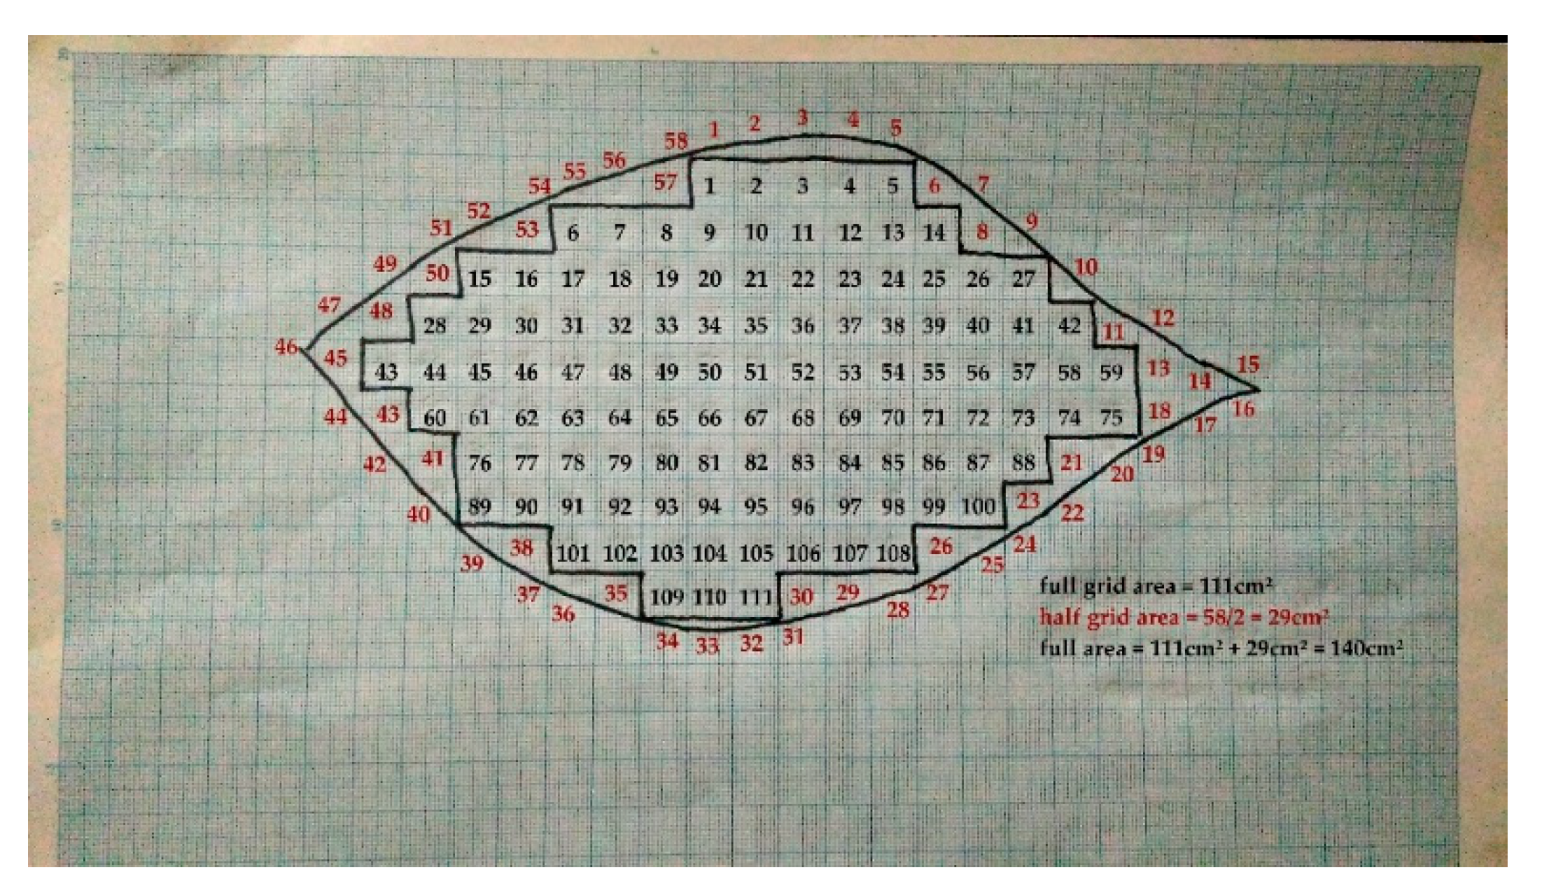 1 2 3 4 5
58
56
55
54 57 1 2 3 4 5 6 7
52
51 53 6 7 8 9 10 11 12 13 14 8 9
49 50 15 16 17 18 19 20 21 22 23 24 25 26 27 10
47 48 28 29 30 31 32 33 34 35 36 37 38 39 40 41 42 11 12
46 45 43 44 45 46 47 48 49 50 51 52 53 54 55 56 57 58 59 13 14 15
44 43 60 61 62 63 64 65 66 67 68 69 70 71 72 73 74 75 18 17 16
42 41 76 77 78 79 80 81 82 83 84 85 86 87 88 21 20 19
40 89 90 91 92 93 94 95 96 97 98 99 100 23 22
39 38 101 102 103 104 105 106 107 108 26 25 24
37 36 35 109 110 111 30 29 28 27
34 33 32 31
full grid area = 111cm²
half grid area = 58/2 = 29cm²
full area = 111cm² + 29cm² = 140cm²